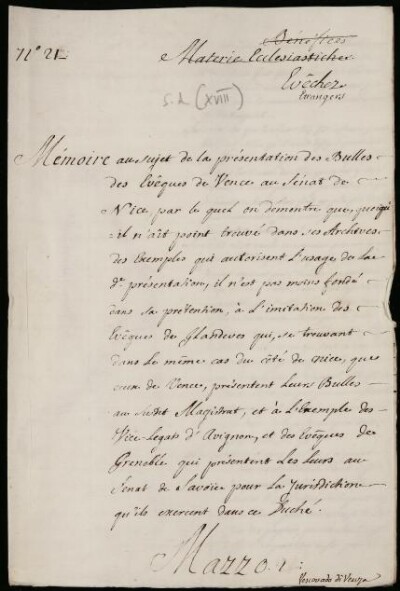 N.° 21
Bénéfices
Materie Ecclesiastiche
Evêchez
Etrangers
s. d. (XVIII)
Mémoire au sujet de la présentation des Bulles
des Evêques de Vence au Sénat de
Nice par le quel on démontre que, quoiqu'
il n'ait point trouvé dans ses Archives
des Exemples qui autorisent l'usage de la
d.e présentation, il n'est pas moins fondé
dans sa prétention, à l'imitation des
Evêques de Glandeves qui, se trouvant
dans le même cas du côté de Nice, que
ceux de Vence, présentent leurs Bulles
au susdit Magistrat, et à l'Exemple des
Vice-Legats d'Avignon, et des Evêques de
Grenoble qui présentent les leurs au
Sénat de Savoie pour la Jurisdiction
qu'ils exercent dans ce Duché.
Mazzo. 1.:
Vescovado di Venza